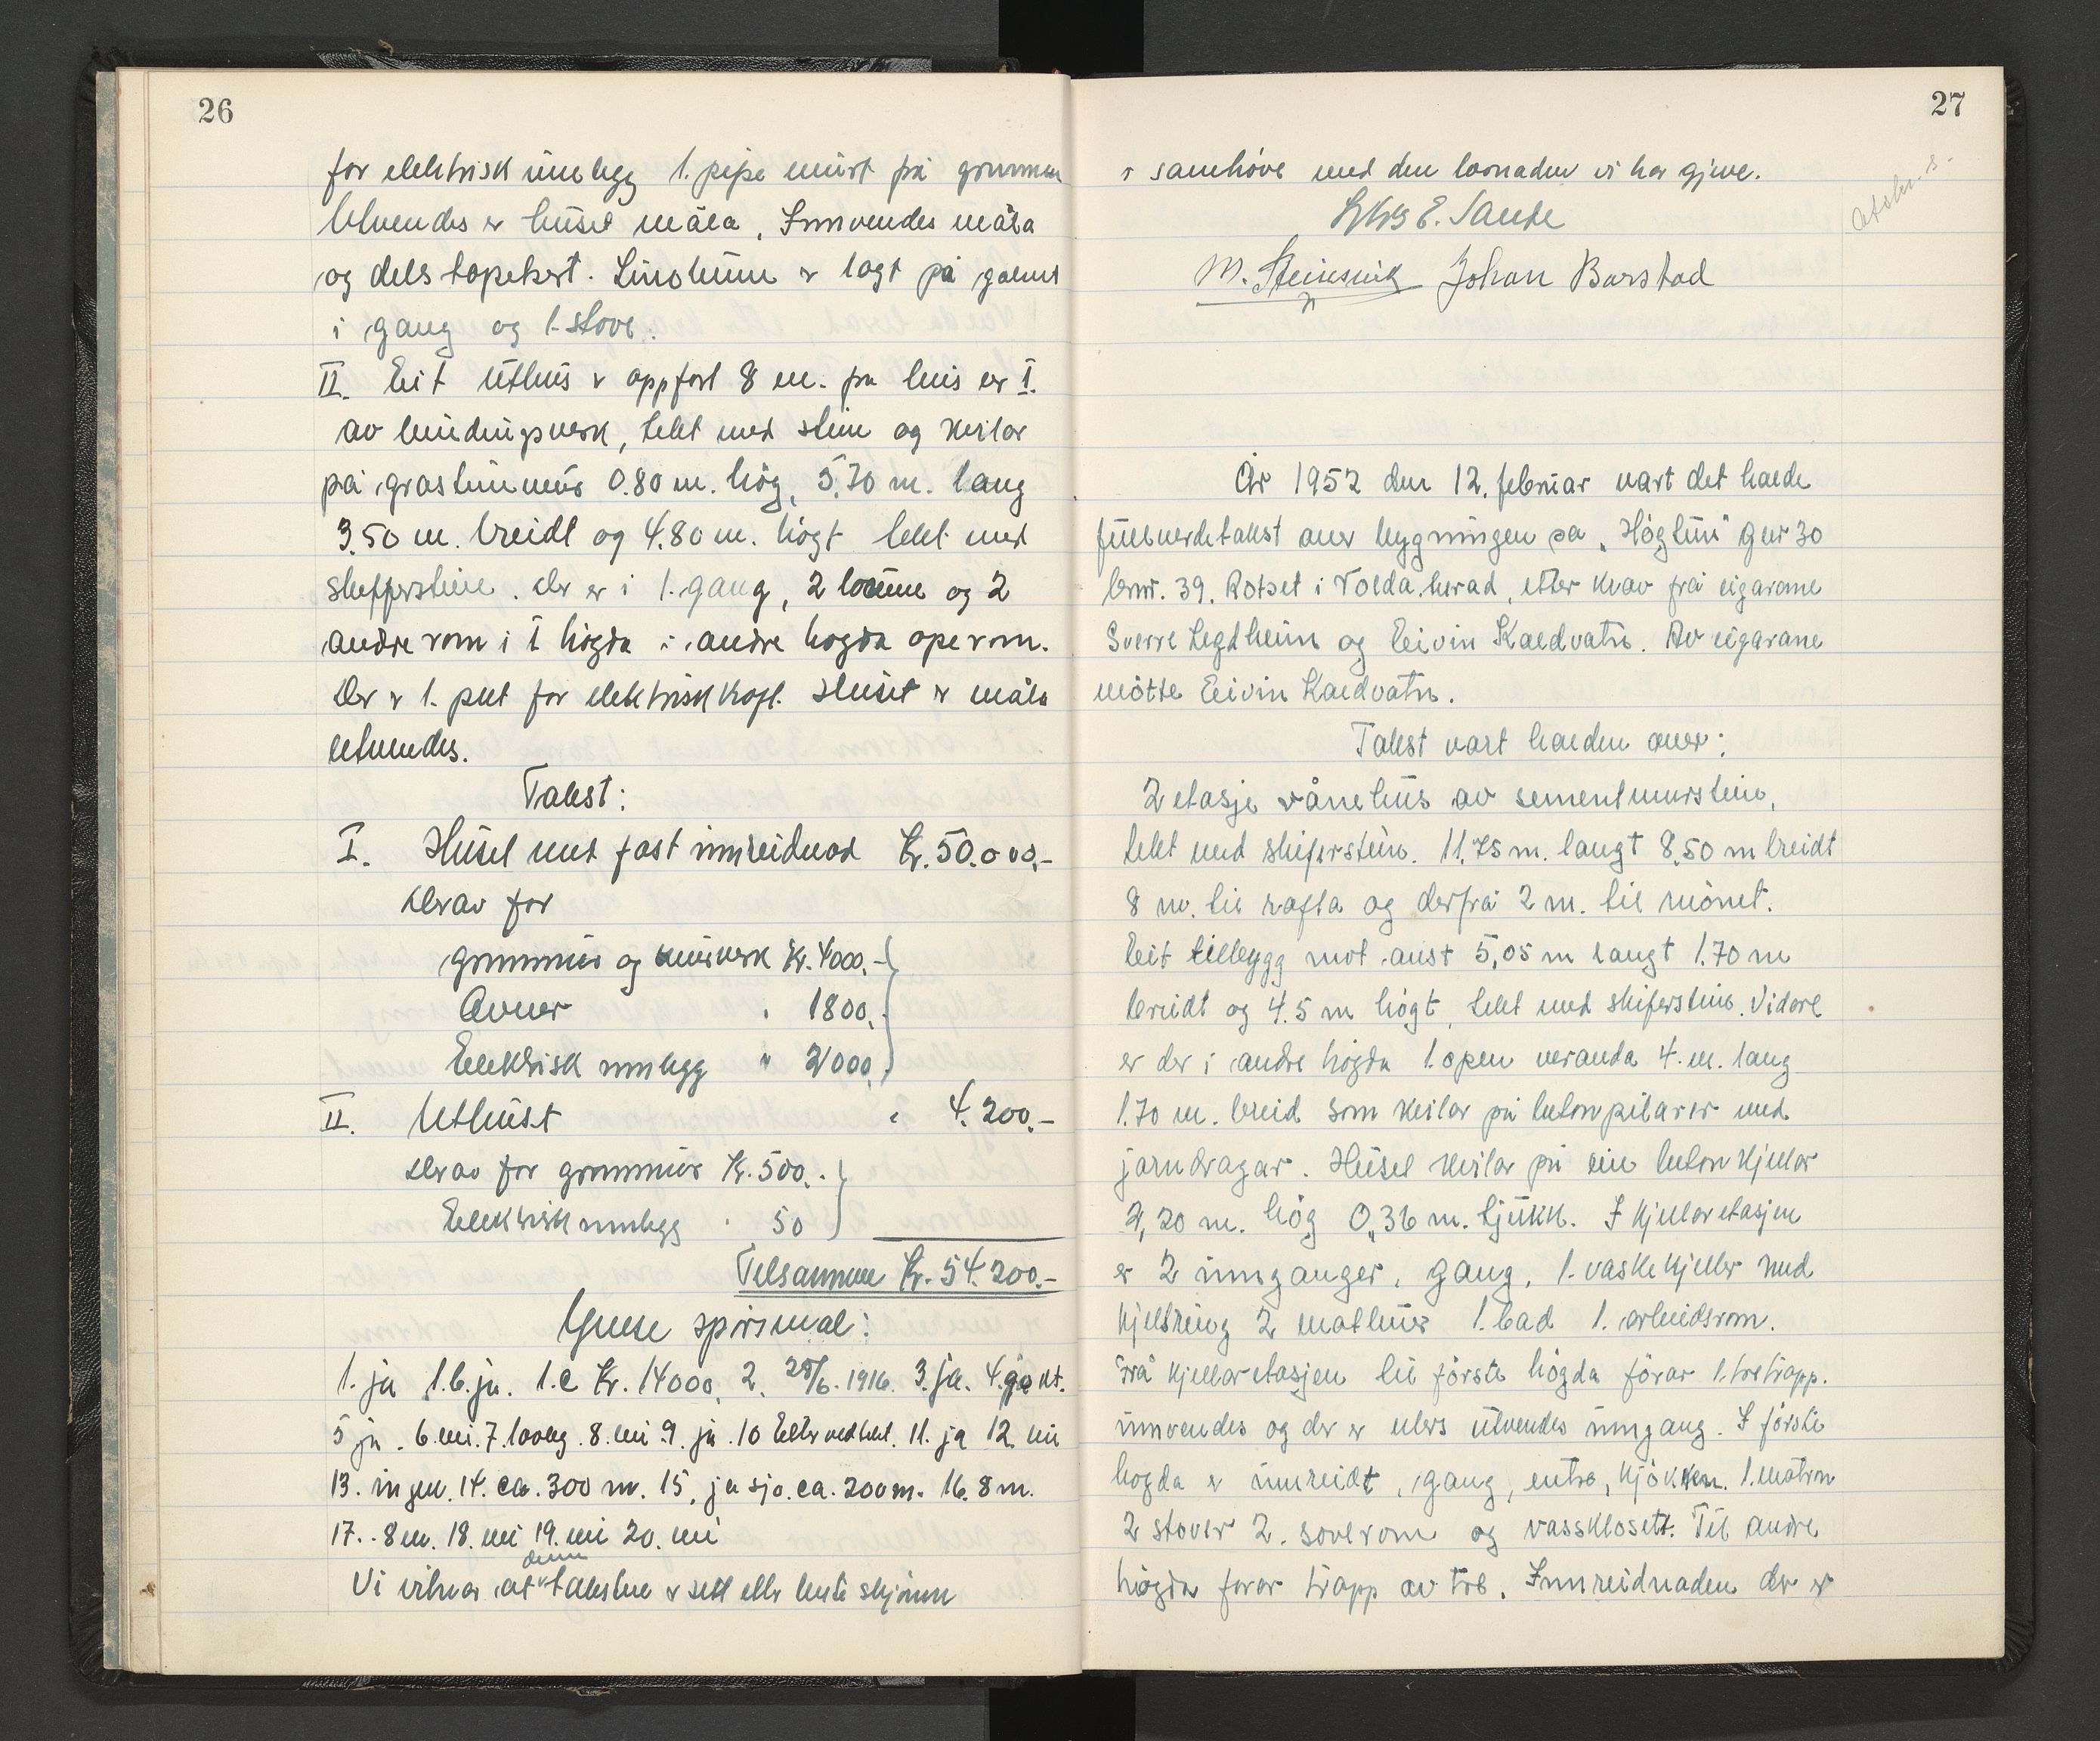 26
for elektrisk innlegg 1. pipe murt frå grunnen
Utvendes er huset måla, Innvendes måla
og dels tapetsert. Linoleum er lagt på golvet
i gang og 1. stove.
II. Eit uthus er oppført 8 m. fra hus nr I.
av bindingsverk, tekt med stein og kviler
på gråsteinmur 0.80 m. høg, 5,70 m. lang
3.50 m. breidt og 4.80 m. høgt tekt med
skifferstein. Der er i 1. gang, 2 and 2
andre rom i I høgda i andre høgda ope rom.
Der er 1. put for elektrisk kraft. Huset er måla
utvendes.
Takst:
I. Huset med fast innreidnad Kr. 50.000,-
Derav for
grunnmur og murverk Kr. 4000.-
Omner " 1800.-
Elektrisk innlegg " 2000.-
II. Uthuset " 4.200.-
Derav for grunnmur Kr. 500.-
Elektrisk innlegg " 50
Tilsammen Kr. 54.200.-
Ymse spørsmål:
1. ja 1.b. ja. 1.c Kr. 14000, 2. 28/6. 1916. 3. ja. 4. godt.
5 ja. 6. nei. 7. lovleg. 8. nei 9. ja. 10 Etter vedtekt. 11. ja 12. nei
13. ingen. 14. ca. 300 m. 15, ja sjø. ca. 200 m. 16. 8 m.
17. 8 m. 18. nei 19. nei 20. nei
Vi vitnar at denne taksten er sett etter beste skjønn
27
i samhøve med den lovnaden vi har gjeve.
E. Sande
M. Steinsvik Johan Barstad
År 1952 den 12. februar vart det halde
fullverdetakst over bygningen på "Høgtun" gnr 30
bnr. 39. Rotset i Volda herad, etter krav frå eigarane
Sverre Legdheim og Eivin Kaldvatn. Av eigarane
møtte Eivin Kaldvatn.
Takst vart halden over:
2 etasje vånehus av sementmurstein,
tekt med skiferstein. 11,75 m. langt 8,50 m breidt
8 m. til rafta og derfrå 2 m. til mønet.
Eit tillegg mot aust 5,05 m langt 1.70 m
breidt og 4.5 m høgt, tekt med skiferstein. Vidare
er der i andre høgda 1. open veranda 4. m. lang
1.70 m. breid som kviler på betonpilarer med
jarndragar. Huset kviler på ein betonkjellar
2,20 m. høg 0,36 m. tjukk. I kjellaretasjen
er 2 innganger, gang, 1. vaskekjeller med
kjellreing 2 matbuer 1. bad 1. arbeidsrom.
Frå kjellaretasjen til første høgda førar 1. tretrapp.
innvendes og der er elers utvendes inngang. I første
høgda er innreidt, gang, entre, kjøkken. 1. matrom
2 stover 2. soverom og vassklosett. Til andre
høgda førar trapp av tre. Innreidnaden der er